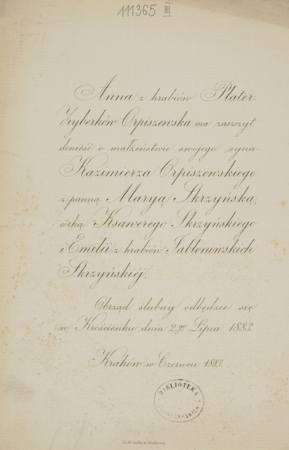 111365 III
Anna z hrabiów Plater
Zyberków Orpiszewska ma zaszczyt
donieść o małżeństwie swojego syna
Kazimierza Orpiszewskiego
z panną Maryą Skrzyńską,
córką Ksawerego Skrzyńskiego
i Emilii z hrabiów Jabłonowskich
Skrzyńskiéj.
Obrząd ślubny odbędzie się
w Krościenku dnia 2go Lipca 1882.
Kraków w Czerwcu 1882.
BIBLIOTEKA